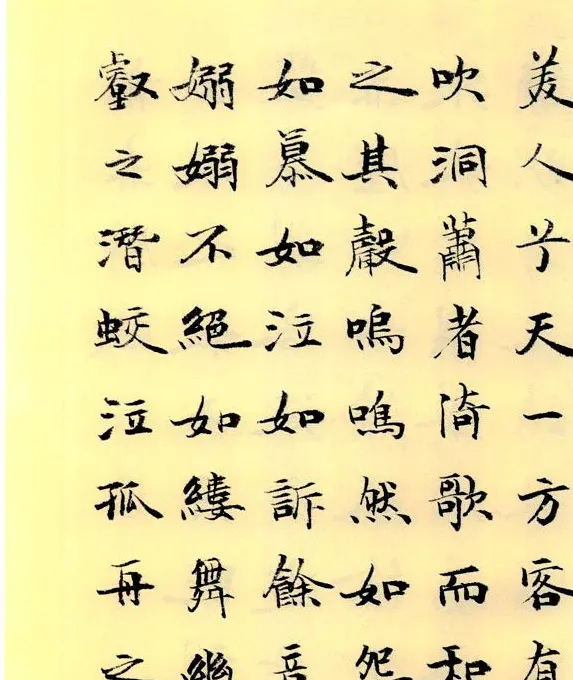 美人兮天一方客有
吹洞蕭者倚歌而和
之其聲嗚嗚然如怨
如慕如泣如訴餘音
嫋嫋不絕如縷舞幽
壑之潛蛟泣孤舟之